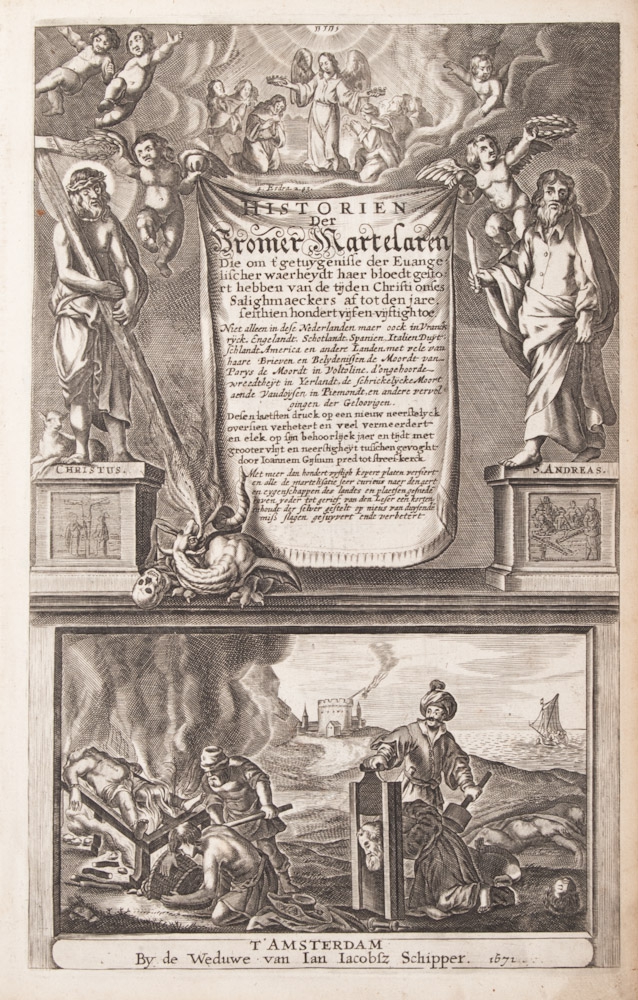 יהוה
4. Esdra 2. 43.
HISTORIEN
Der
Vromer Martelaren
Die om t'getuygenisse der Euange-
lischer waerheydt haer bloedt gesto-
rt hebben van de tijden Christi onses
Salighmaeckers af tot den jare,
sesthien hondert vijf en vijftigh toe.
Niet alleen in dese Nederlanden maer oock in Vranck
ryck, Engelandt, Schotlandt, Spanien, Italien Duyt-
schlandt America en andere Landen, met vele van
haare Brieven en Belydenissen de Moordt van
Parys de Moordt in Voltoline, d'ongehoorde
wreedtheyt in Yerlandt, de schrickelycke Moort
aende Vaudoysen in Piemondt, en andere vervol-
gingen der Geloovigen.
Desen laetsten druck op een nieuw neerstelyck
oversien verbetert en veel vermeerdert
en elck op sijn behoorlijck jaer en tijdt met
grooter vlijt en neerstigheyt tusschen gevoght
door Ioannem Gysium pred tot streef-kerck.
Met meer dan hondert vyftigh kopere platen versiert
en alle de martelisatie seer curieus naer den aert
en eygenschappen des landts en plaetsen gesneden
yeder tot gerief van den Leser een korten
inhoudt der selver gestelt op nieus van duysende
miss slagen gesuyvert ende verbetert
CHRISTUS.
S. ANDREAS.
T'AMSTERDAM
By de Weduwe van Ian Iacobsz Schipper. 1671